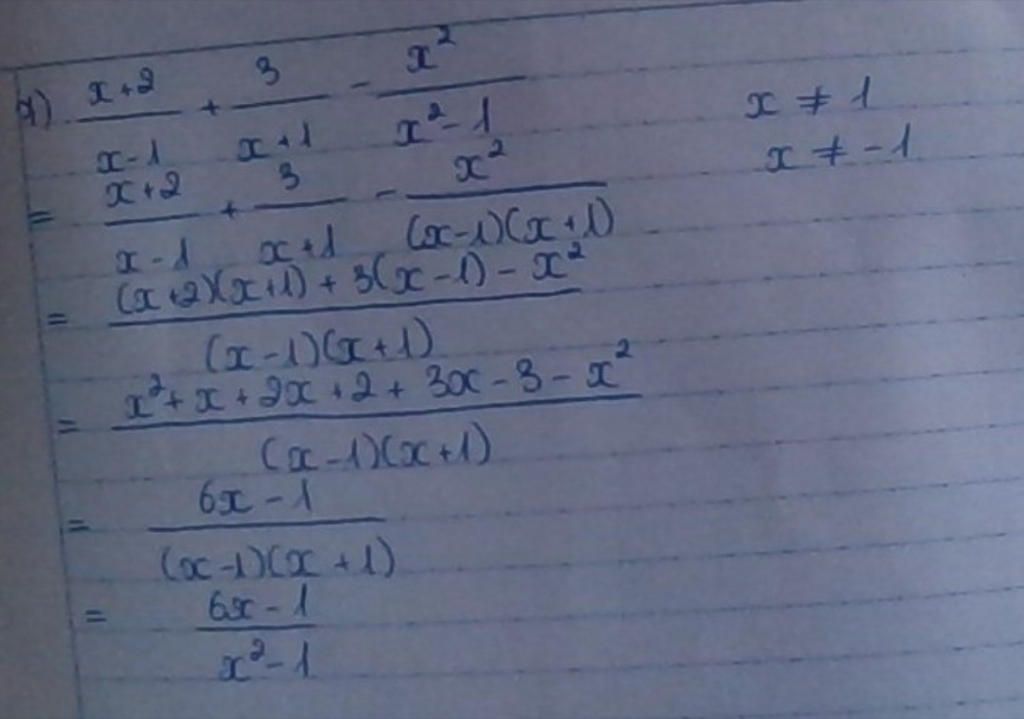 a) (x+2)/(x-1) + 3/(x+1) - x²/(x²-1) x ≠ 1
x ≠ -1
= (x+2)/(x-1) + 3/(x+1) - x²/((x-1)(x+1))
= ((x+2)(x+1) + 3(x-1) - x²)/((x-1)(x+1))
= (x² + x + 2x + 2 + 3x - 3 - x²)/((x-1)(x+1))
= (6x - 1)/((x-1)(x+1))
= (6x - 1)/(x² - 1)